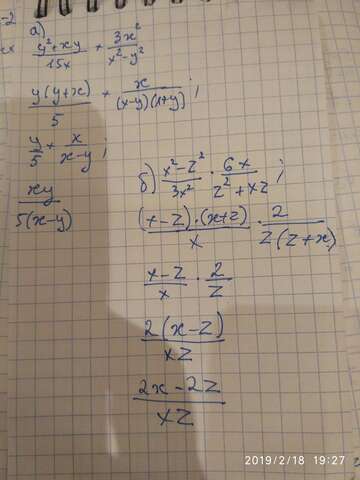 -2
а)
(y²+xy)/15x * 3x²/(x²-y²)
y(y+x)/5 * x/((x-y)(x+y));
y/5 * x/(x-y);
xy/5(x-y)
б) (x²-z²)/3x² · 6x/(z²+xz);
(x-z)·(x+z)/x · 2/z(z+x)
(x-z)/x · 2/z
2(x-z)/xz
(2x-2z)/xz
2019/2/18 19:27